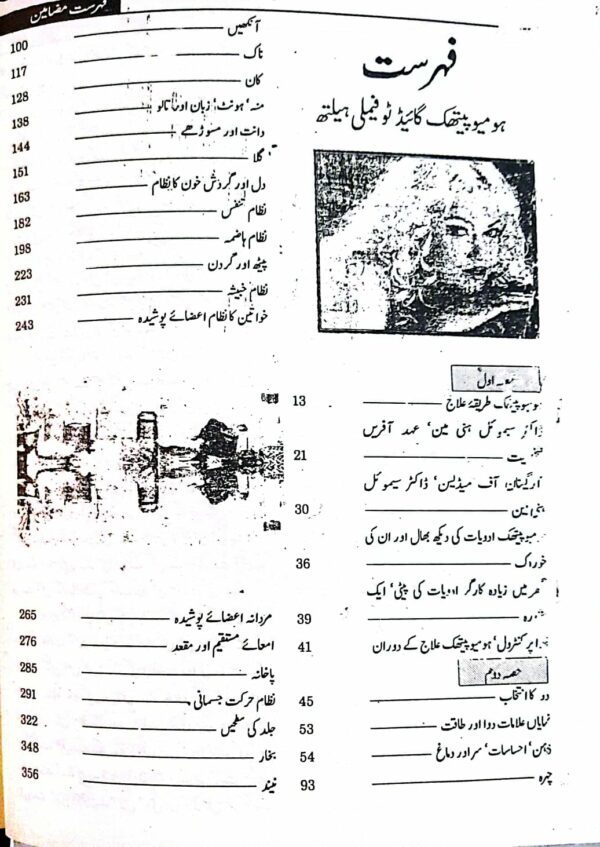 فہرست مضامین
فہرست
ہومیوپیتھک گائیڈ ٹو فیملی ہیلتھ
اول
طریقۂ علاج 13
ڈاکٹر سیموئل ہنی مین‘ عہد آفریں
21
آف میڈیسن‘ ڈاکٹر سیموئل
30
ادویات کی دیکھ بھال اور ان کی
خوراک 36
میں زیادہ کارگر ادویات کی پیٹی‘ ایک
39
کنٹرول‘ ہومیوپیتھک علاج کے دوران 41
حصہ دوم
دوا کا انتخاب 45
نمایاں علامات دوا اور طاقت 53
ذہن‘ احساسات‘ سر اور دماغ 54
چہرہ 93
آنکھیں 100
ناک 117
کان 128
منہ‘ ہونٹ‘ زبان اور تالو 138
دانت اور مسوڑھے 144
گلا 151
دل اور گردش خون کا نظام 163
نظام تنفس 182
نظام ہاضمہ 198
پیٹھ اور گردن 223
نظام 231
خواتین کا نظام اعضائے پوشیدہ 243
مردانہ اعضائے پوشیدہ 265
امعائے مستقیم اور مقعد 276
پاخانہ 285
نظام حرکت جسمانی 291
جلد کی سطحیں 322
بخار 348
نیند 356